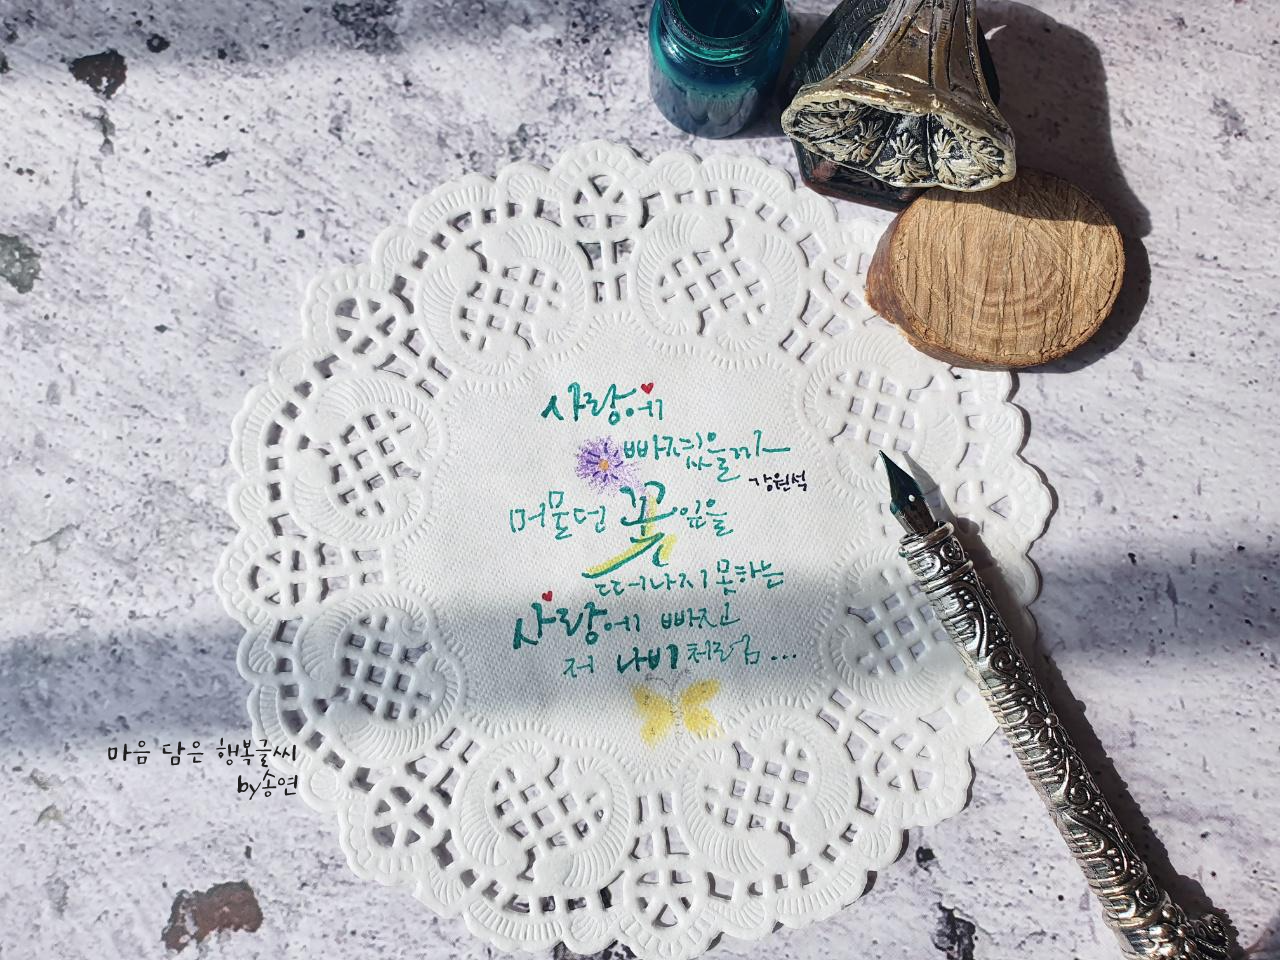 사랑에
빠졌을까
강원석
머물던 꽃잎을
떠나지 못하는
사랑에 빠지고
저 나비처럼...
마음 담은 행복글씨
by송연